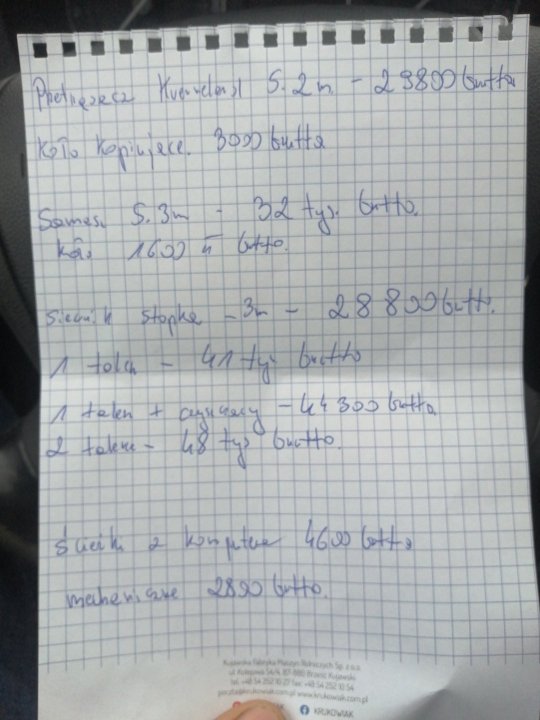 5.2 m - 29800 brutto
Koło kopiujące 3000 brutto
5.3m - 32 tys. brutto.
1600 zł brutto.
siewnik stopka - 3m - 28800 brutto.
1 talerz - 41 tys brutto
1 talerz + - 44300 brutto
2 talerze - 48 tys brutto.
Ścieżki z komputera 4600 brutto
mechaniczne 2890 brutto.
Kujawska Fabryka Maszyn Rolniczych Sp. z o.o.
ul. Kolejowa 54/4, 87-880 Brześć Kujawski
tel. +48 54 252 10 27 fax: +48 54 252 10 54
poczta@krukowiak.com.pl www.krukowiak.com.pl
KRUKOWIAK